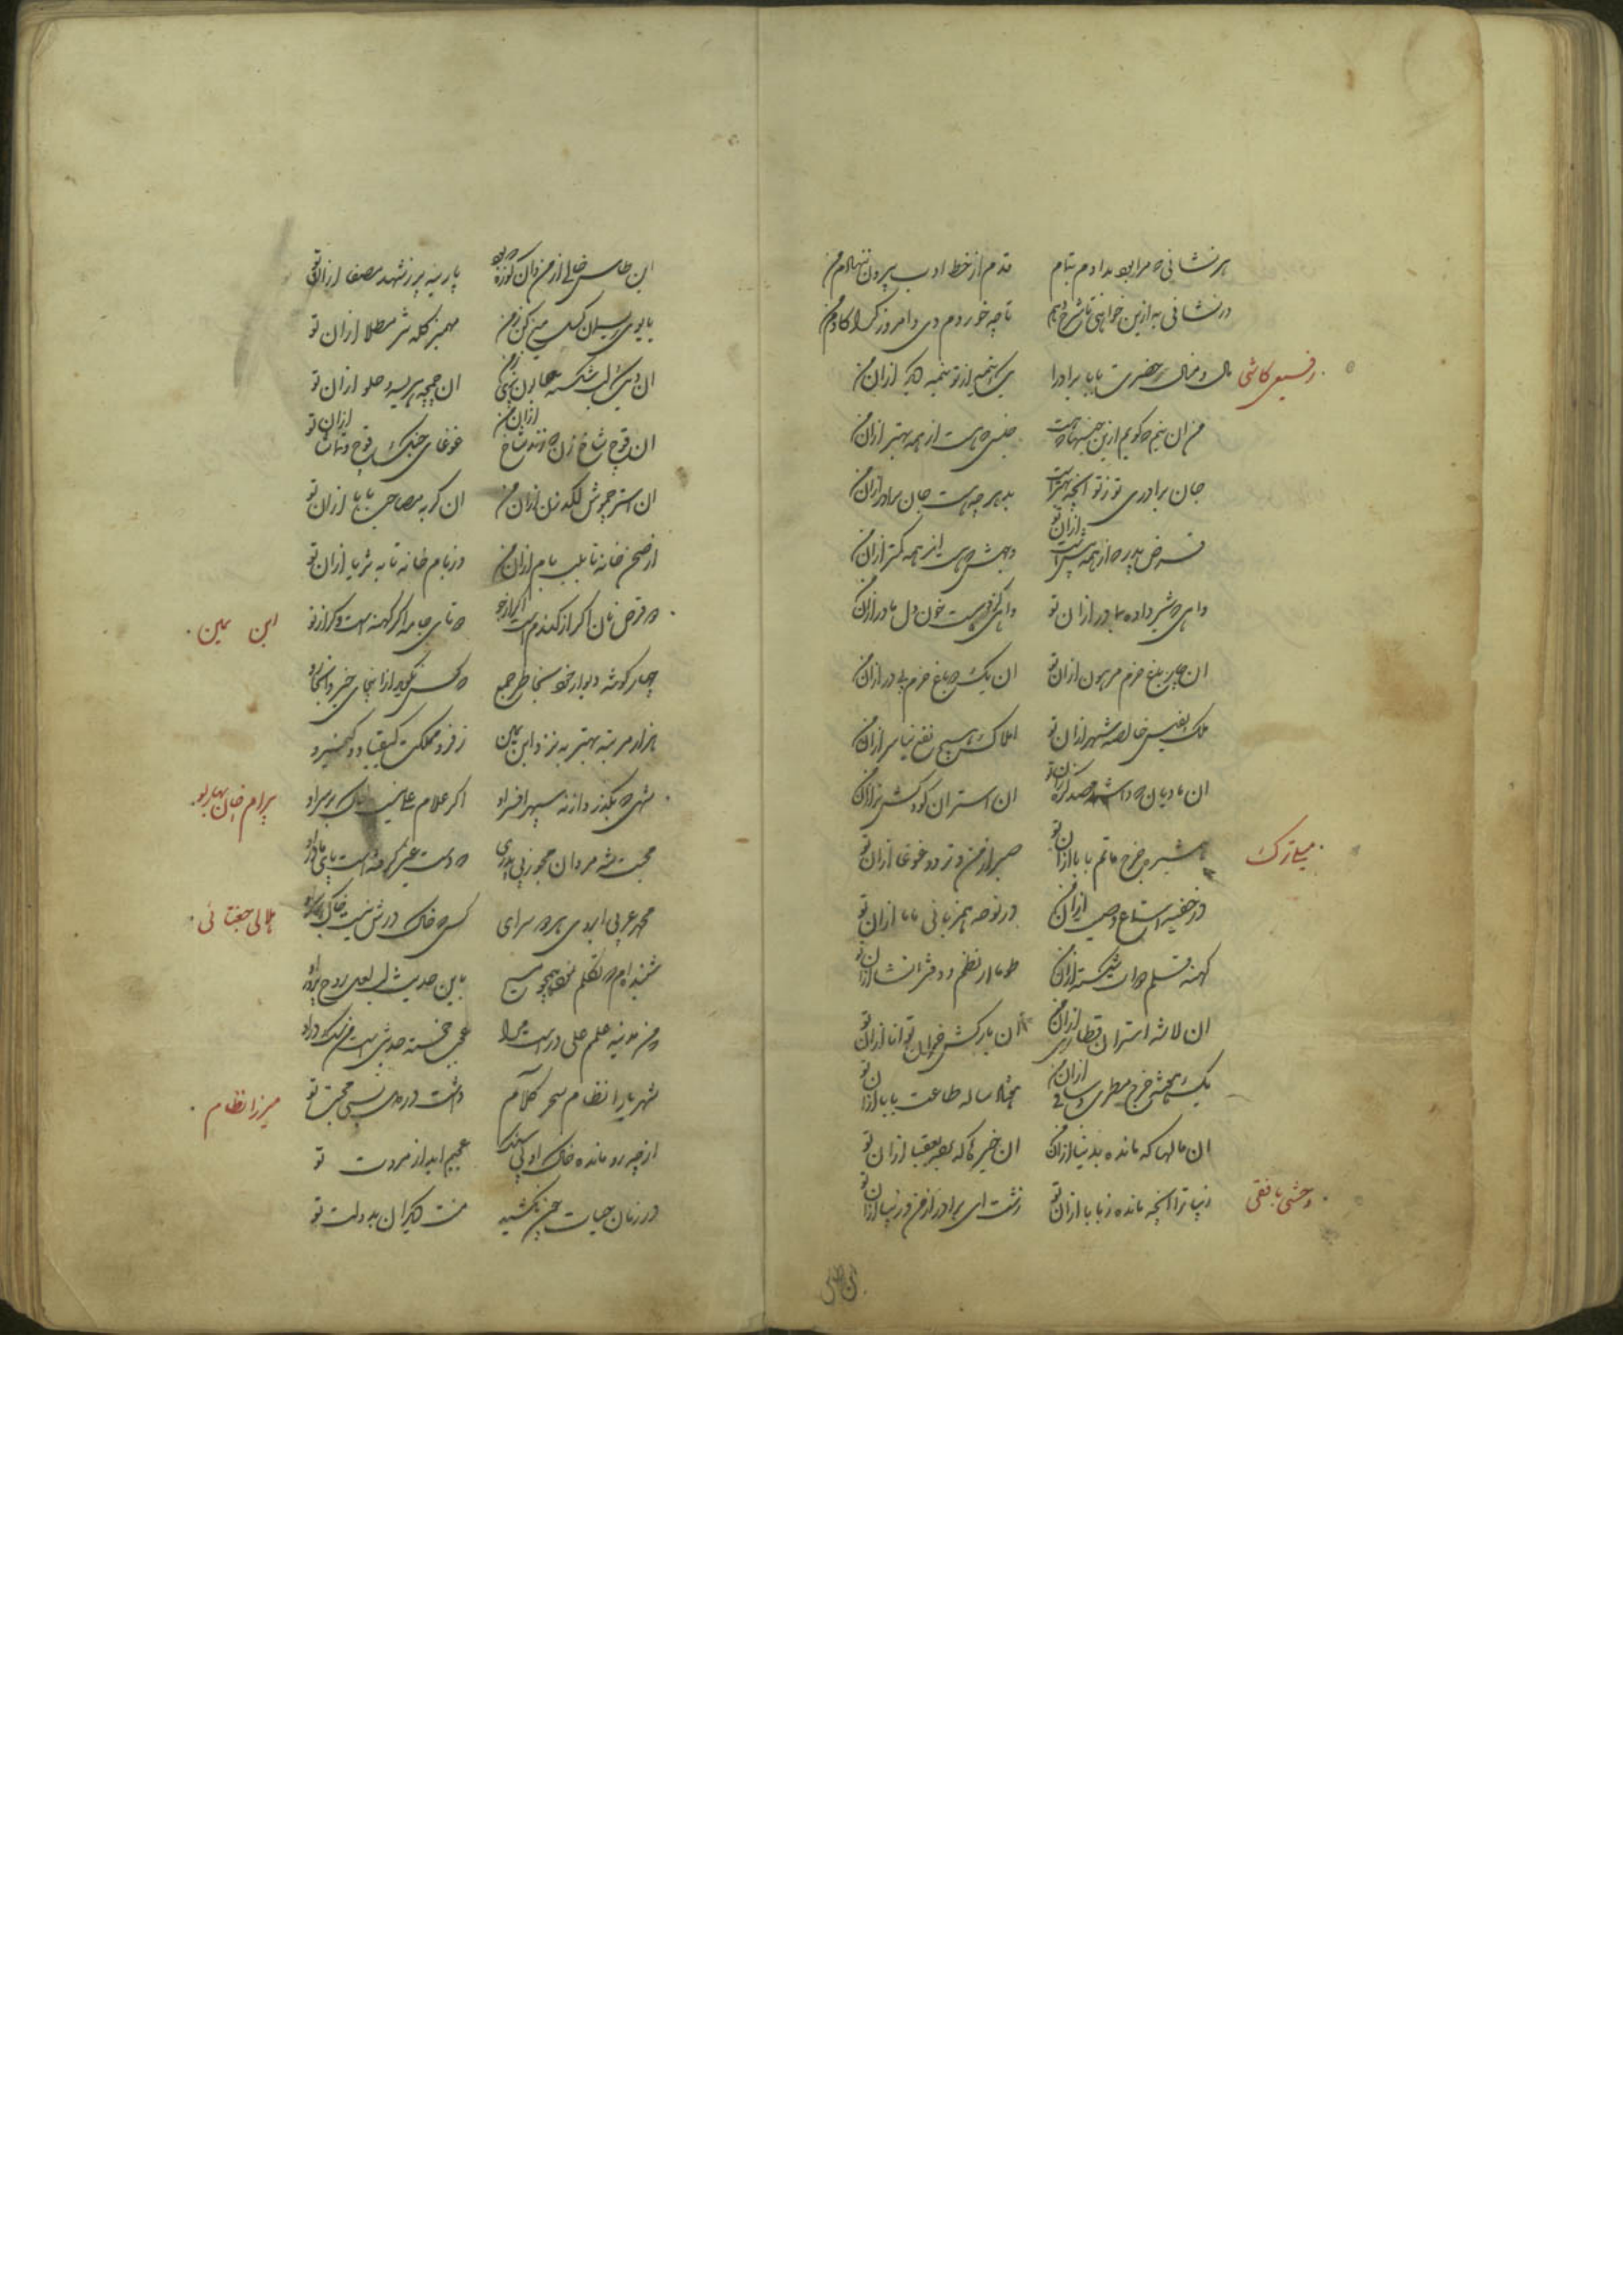 هر نشانی که مرا بود بدادم بتمام قدم از خط ادب بیرون ننهادم من
در نشانی به ازین خواهی تا شرح دهم تا چه خوردم دی و امروز کرا کادم من
رفیعی کاشی
مال و منال حضرت بابا برادرا از تو نیمه دیگر ازان من
من ان نیم که گویم ازین جنسها که هست جنسی که هست از همه بهتر ازان من
جان برادری تو ز تو انچه بهتر است بد هر چه هست جان برادر ازان من
قرض پدر که از همه بیش است ازان تو وجهش که هست از همه کمتر ازان من
وامی که شیر داده مادر ازان تو خون دل مادر ازان من
ان چار باغ خرم مرهون ازان تو ان یک دو باغ خرم پدر ازان من
ملک نفیس خالصه شهر ازان تو املاک هیچ نفع نیاور ازان من
ان مادیان که داشت صد کره ازان تو ان استران کودکش نر ازان من
میلی ترک
شیر و خرج ماتم بابا ازان تو صبر از من و تردد و غوغا ازان تو
در نوحه همزبانی ماما ازان تو
کهنه قلمدان شکسته ازان من طومار نظم و دفتر انشا ازان تو
ان لاشه استران قطاری ازان من ان بارکش خران توانا ازان تو
یک بخش خرج مطرب و ساقی ازان من پنجاه ساله طاعت بابا ازان تو
ان مالها که مانده بدنیا ازان من ان خیرها که بعقبا ازان تو
وحشی بافقی
زیبا تر انچه مانده ز بابا ازان تو زشت ای برادر از من و زیبا ازان تو
این طاس خالی از من و ان کوزه که بود پارینه پر ز شهد مصفا ازان تو
یابوی ریسمان گسل میخ کن ز من مهمیز کله تیز مطلا ازان تو
ان دیگ لب شکسته صابون پزی ز من ان چمچه هریسه و حلوا ازان تو
ان قوچ شاخ زن که زند شاخ ازان من غوغای جنگ قوچ و تماشا ازان تو
ان استر چموش لگد زن ازان من ان گربه مصاحب بابا ازان تو
از صحن خانه تا بلب بام ازان من وز بام خانه تا به ثریا ازان تو
ابن یمین
دو قرص نان اگر از گندم است اگر از جو دو تای جامه اگر کهنه است و گر از نو
چهار گوشه دیوار خود بخاطر جمع که کس نگوید از اینجای خیز و انجا رو
هزار مرتبه بهتر به نزد ابن یمین ز فر و مملکت کیقباد و کیخسرو
بیرام خان بهارلو
شهی که بگذرد از نه سپهر افسر او اگر غلام علی نیست خاک بر سر او
محبت شه مردان مجو ز بی پدری که دست غیر گرفته است پای مادر او
هلالی جغتائی
محمد عربی ابروی هر دو سرای کسی که خاک درش نیست خاک بر سر او
شنیده ام که تکلم نمود همچو مسیح باین حدیث لب لعل روح پرور او
که من مدینه علمم علی درست مرا عجب خجسته حدیثی است من سگ در او
میرزا نظام
شهریارا نظام سحر کلام داشت در دهر نسبی محبت تو
در زمان حیات چون نکشید منت دیگران به دولت تو